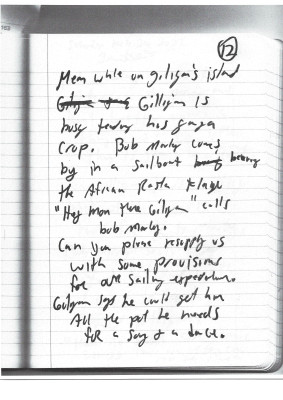 12
Mean while on giligan's island
Gilligan is
busy tending his ganja
crop. Bob Marley comes
by in a sailboat bearing
the African Rasta Flag
"Hey Mon there Giligan" calls
bob marley.
Can you please resupply us
with some provisions
for our sailing expedition.
Giligan says he could get him
All the pot he needs
for a song & a dance.